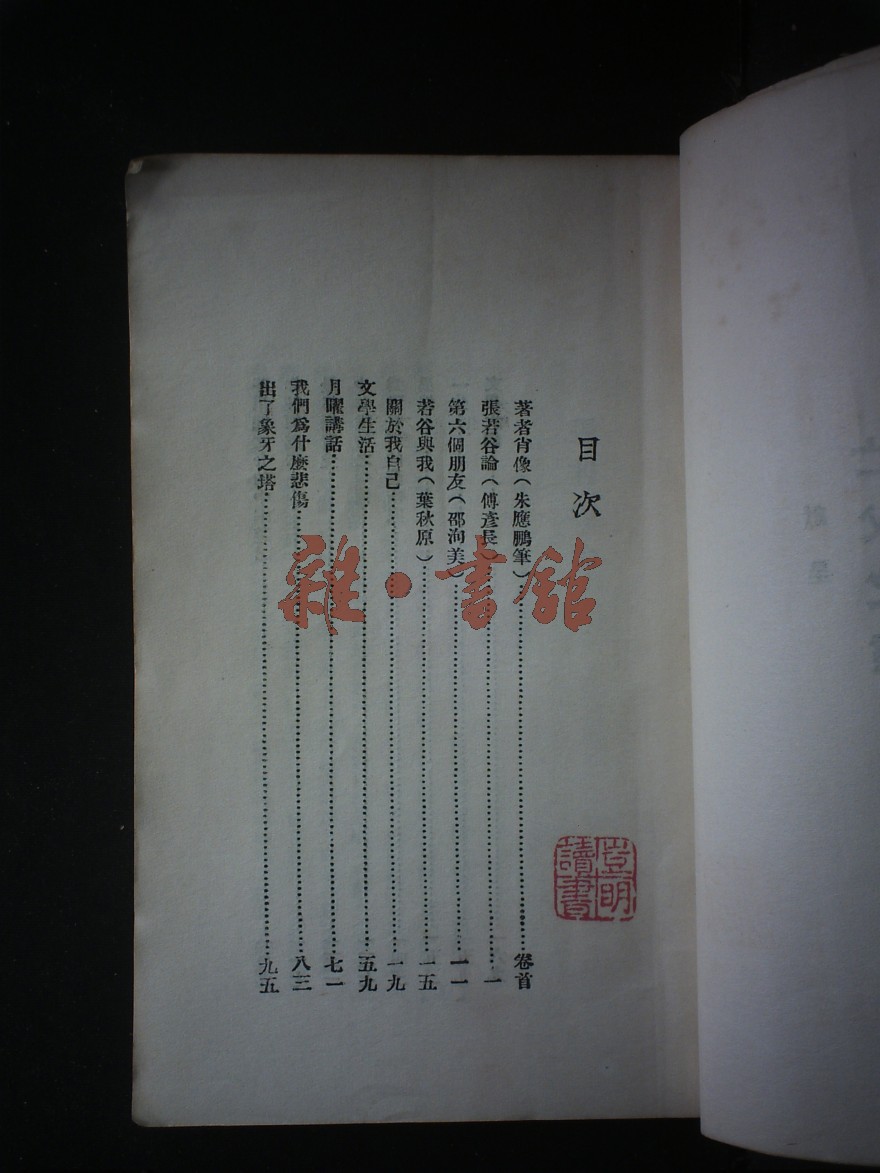 目次
著者肖像（朱應鵬筆）……卷首
張若谷論（傅彥長）……一
第六個朋友（邵洵美）……一一
若谷與我（葉秋原）……一五
關於我自己……一九
文學生活……五九
月曜講話……七一
我們爲什麼悲傷……八三
出了象牙之塔……九五
豈明讀書
雜·書館